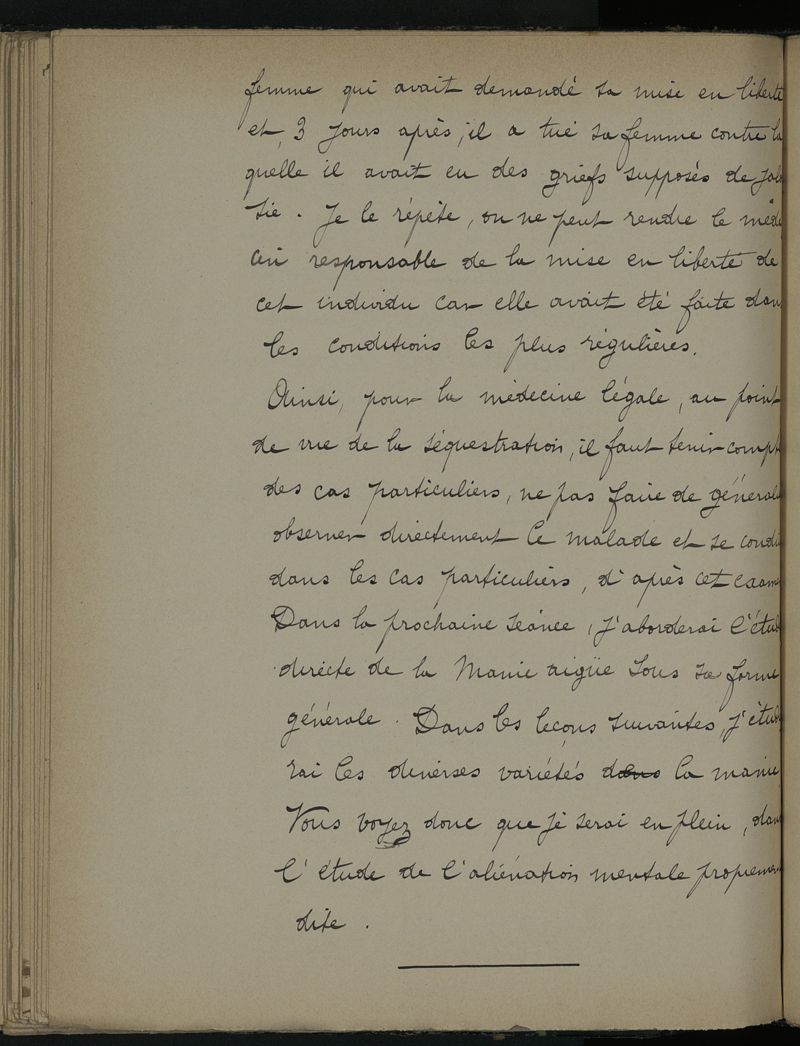 femme qui avait demandé sa mise en liberté
et, 3 jours après, il a tué sa femme contre la
quelle il avait eu des griefs supposés de jalo
sie. Je le répète, on ne peut rendre le méde
cin responsable de la mise en liberté de
cet individu car elle avait été faite dans
les conditions les plus régulières.
Ainsi, pour la médecine légale, au point
de vue de la séquestration, il faut tenir compt
des cas particuliers, ne pas faire de général
observer directement le malade et se condu
dans les cas particuliers, d'après cet exam
Dans la prochaine séance, j'aborderai l'étud
directe de la Manie aigüe sous sa forme
générale. Dans les leçons suivantes, j'étud
rai les diverses variétés dans la manie
Vous voyez donc que je serai en plein, dans
l'étude de l'aliénation mentale propremen
dite.